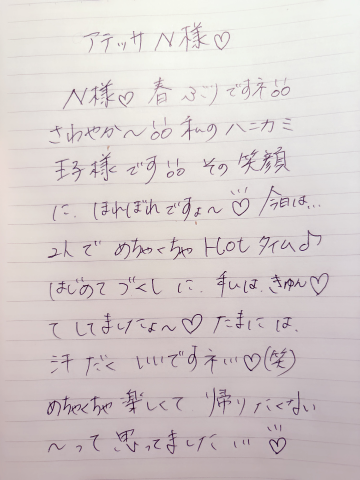 アテッサ N様♡
N様♡ 春ぶりですネ!!
さわやか〜!! 私のハニカミ
王子様です!! その笑顔
に、ほれぼれですょ〜♡ 今日は…
2人で めちゃくちゃ HOt タイム♪
はじめてづくしに、私は、きゅん♡
てしてましたょ〜♡ たまには、
汗だく いいですネ…♡(笑)
めちゃくちゃ 楽しくて 帰りたくない
〜って 思ってました…♡